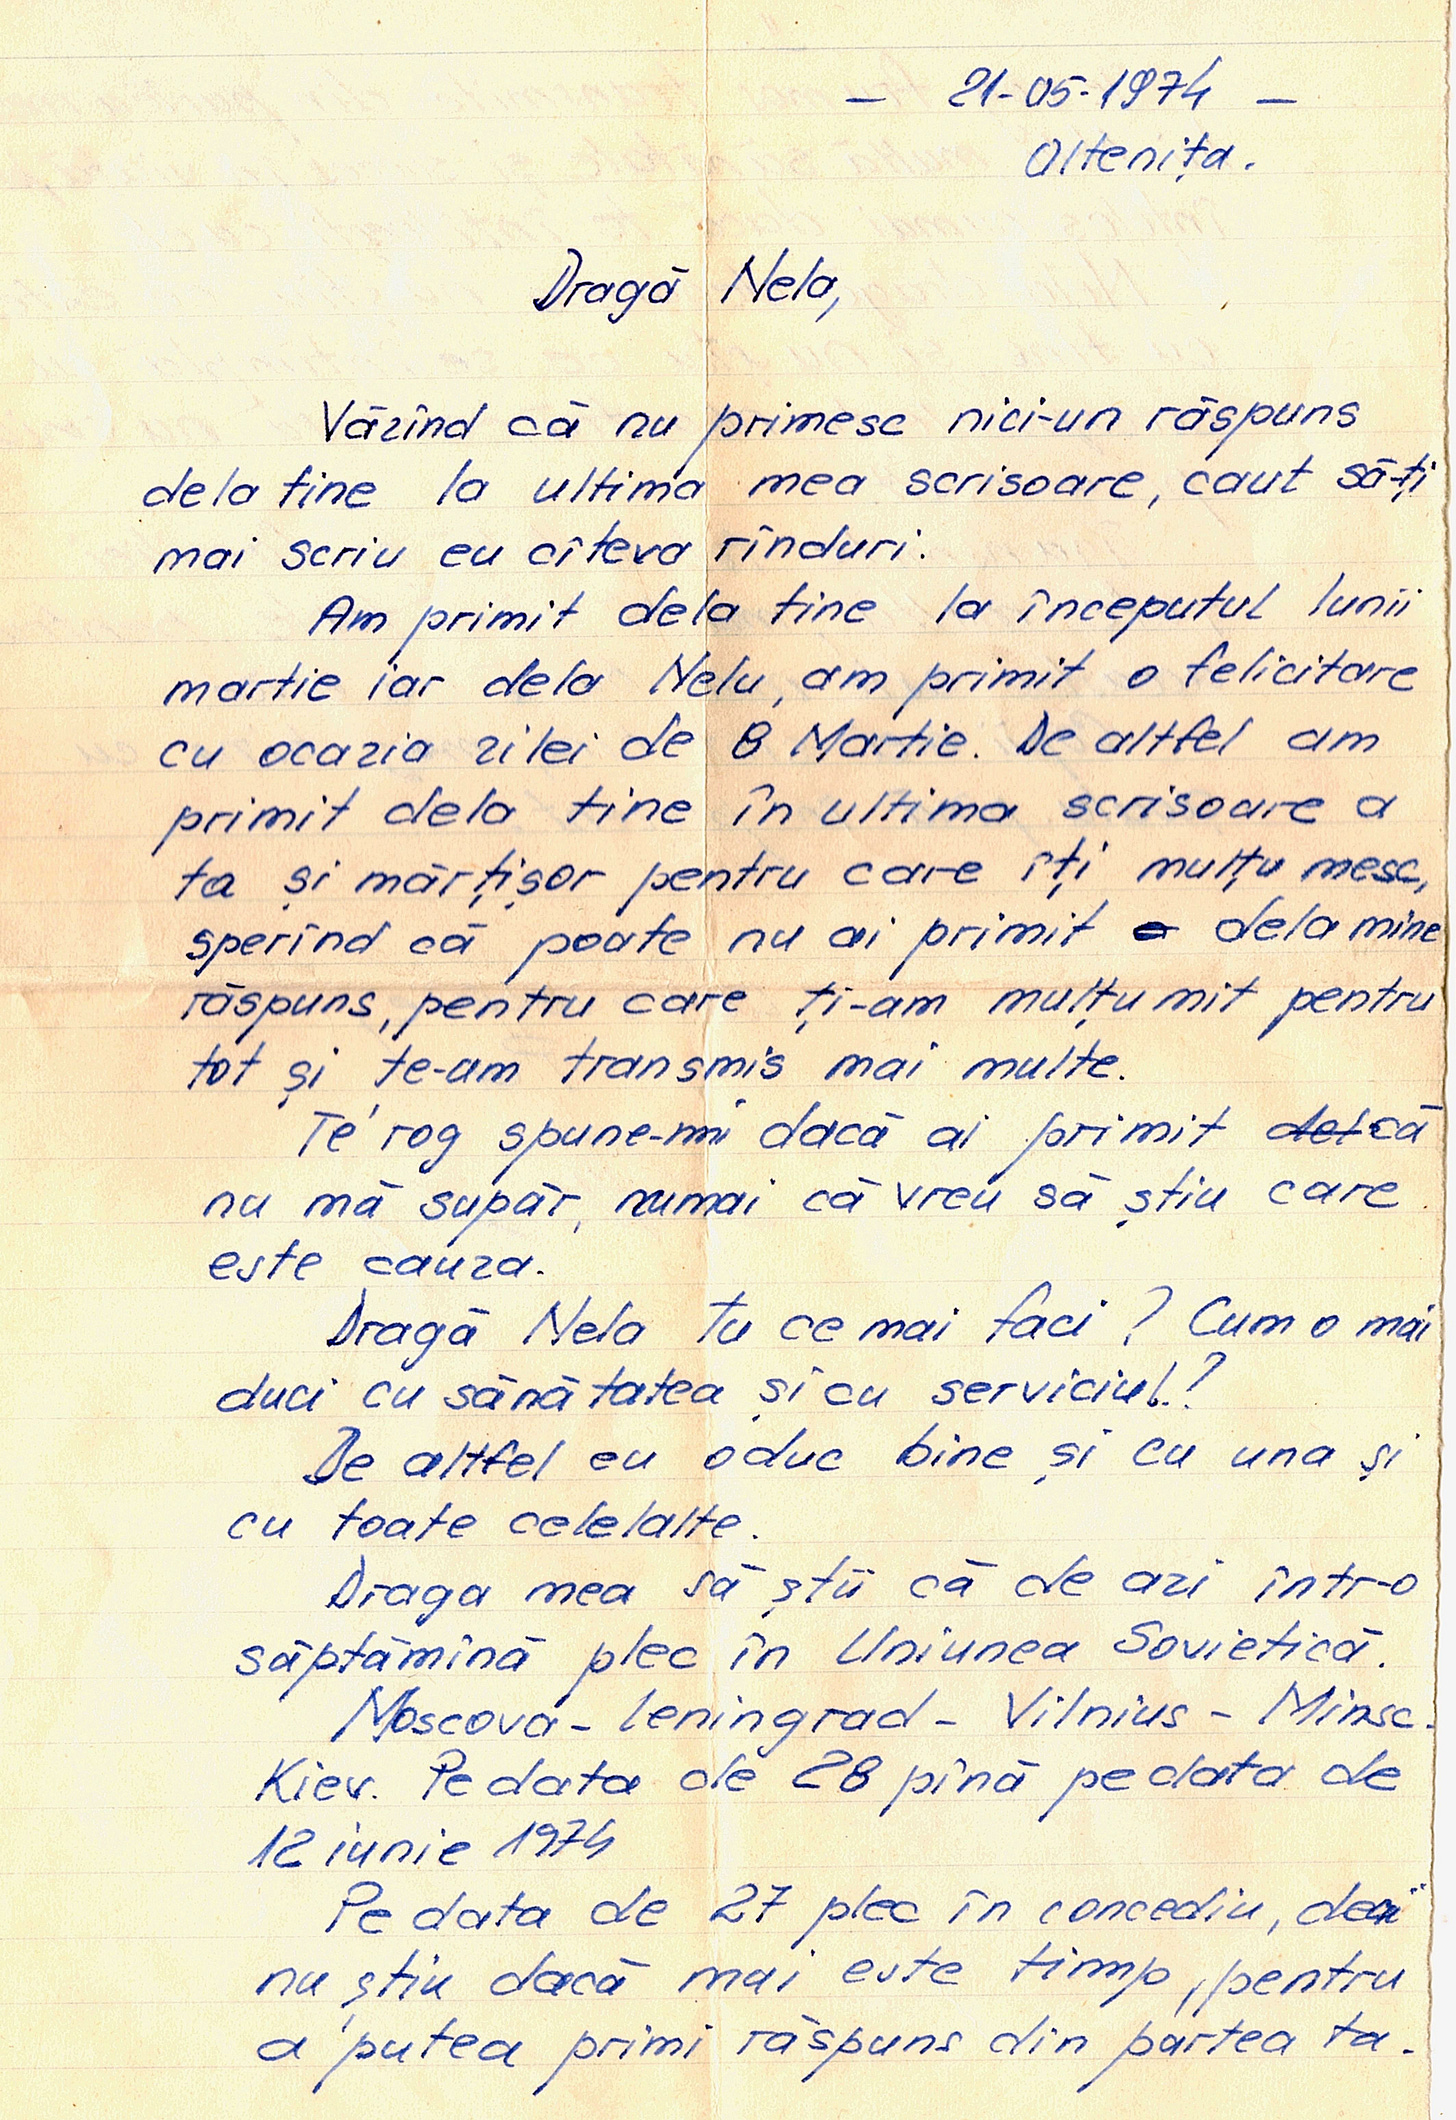 - 21-05-1974 -
Oltenița.
Dragă Nela,
Văzînd că nu primesc nici-un răspuns
dela tine la ultima mea scrisoare, caut să-ți
mai scriu eu cîteva rînduri.
Am primit dela tine la începutul lunii
martie iar dela Nelu, am primit o felicitare
cu ocazia zilei de 8 Martie. De altfel am
primit dela tine în ultima scrisoare a
ta și mărțișor pentru care îți mulțumesc,
sperînd că poate nu ai primit dela mine
răspuns, pentru care ți-am mulțumit pentru
tot și te-am transmis mai multe.
Te rog spune-mi dacă ai primit că
nu mă supăr, numai că vreu să știu care
este cauza.
Dragă Nela Tu ce mai faci? Cum o mai
duci cu sănătatea și cu serviciul.?
De altfel eu o duc bine și cu una și
cu toate celelalte.
Draga mea să știi că de azi într-o
săptămînă plec în Uniunea Sovietică.
Moscova - Leningrad - Vilnius - Minsc-
Kiev. Pe data de 28 pînă pe data de
12 iunie 1974
Pe data de 27 plec în concediu, deci
nu știu dacă mai este timp, pentru
a putea primi răspuns din partea ta.